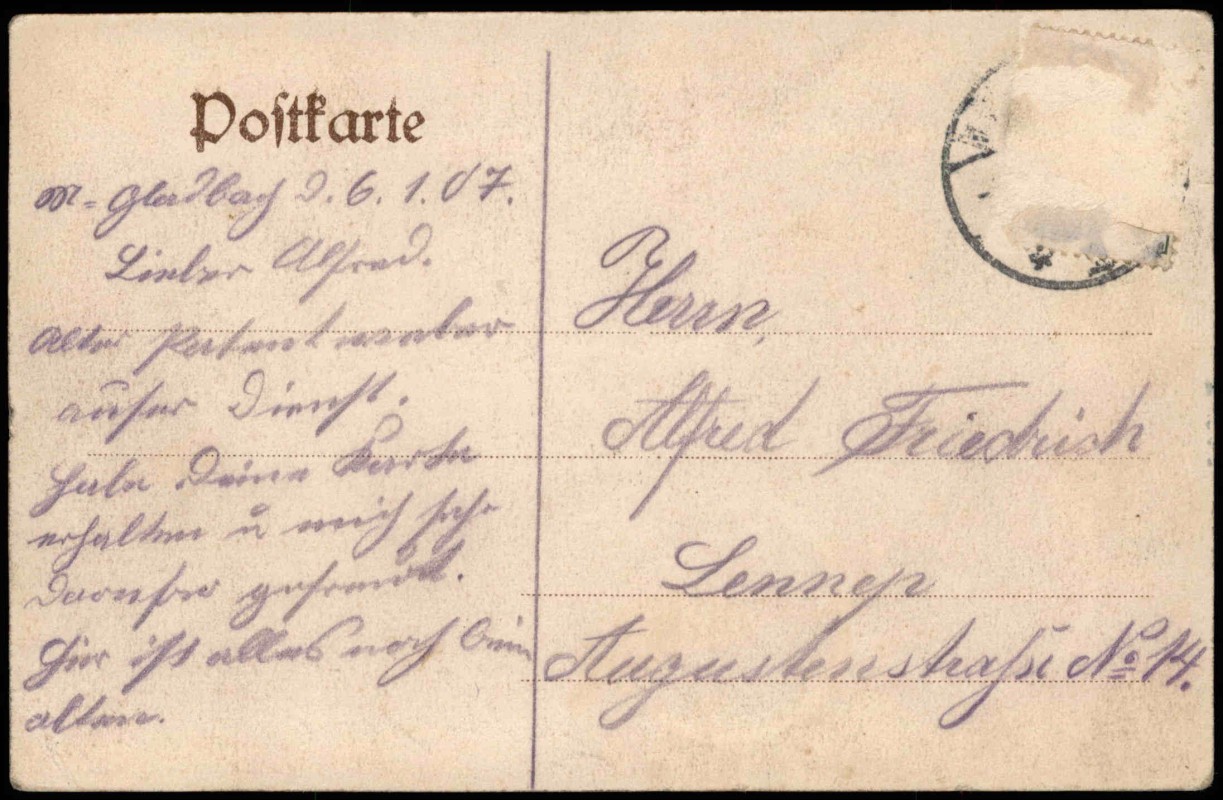 Postkarte
M-Gladbach d. 6. 1. 07.
Lieber Alfred.
Alter Patentweber
außer Dienst.
Habe Deine Karte
erhalten u mich sehr
darüber gefreut.
Hier ist alles noch beim
alten.
Herrn,
Alfred Friedrich
Lennep
Augustenstraße No 14.